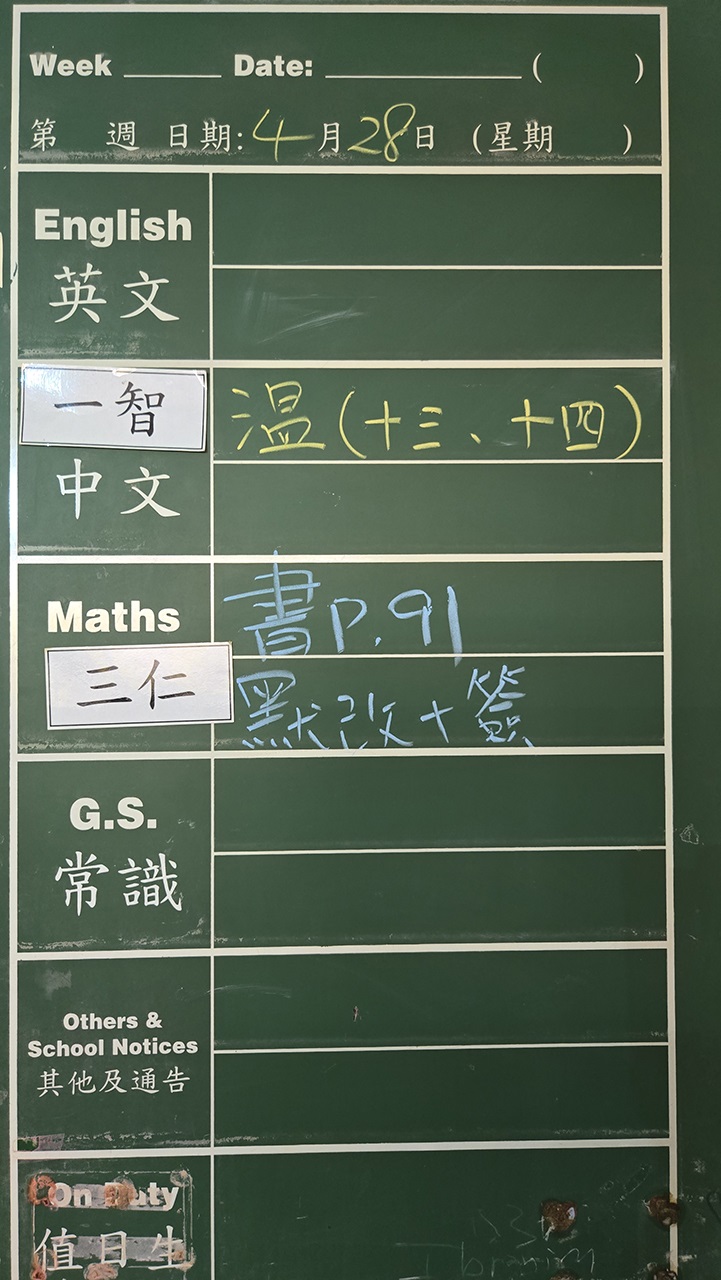 Week ______ Date: ____________ ( )
第 週 日期: 4 月 28 日 (星期 )
English
英文
一智
溫(十三、十四)
中文
Maths
書P.91
三仁
默改+簽
G.S.
常識
Others &
School Notices
其他及通告
On Duty
值日生